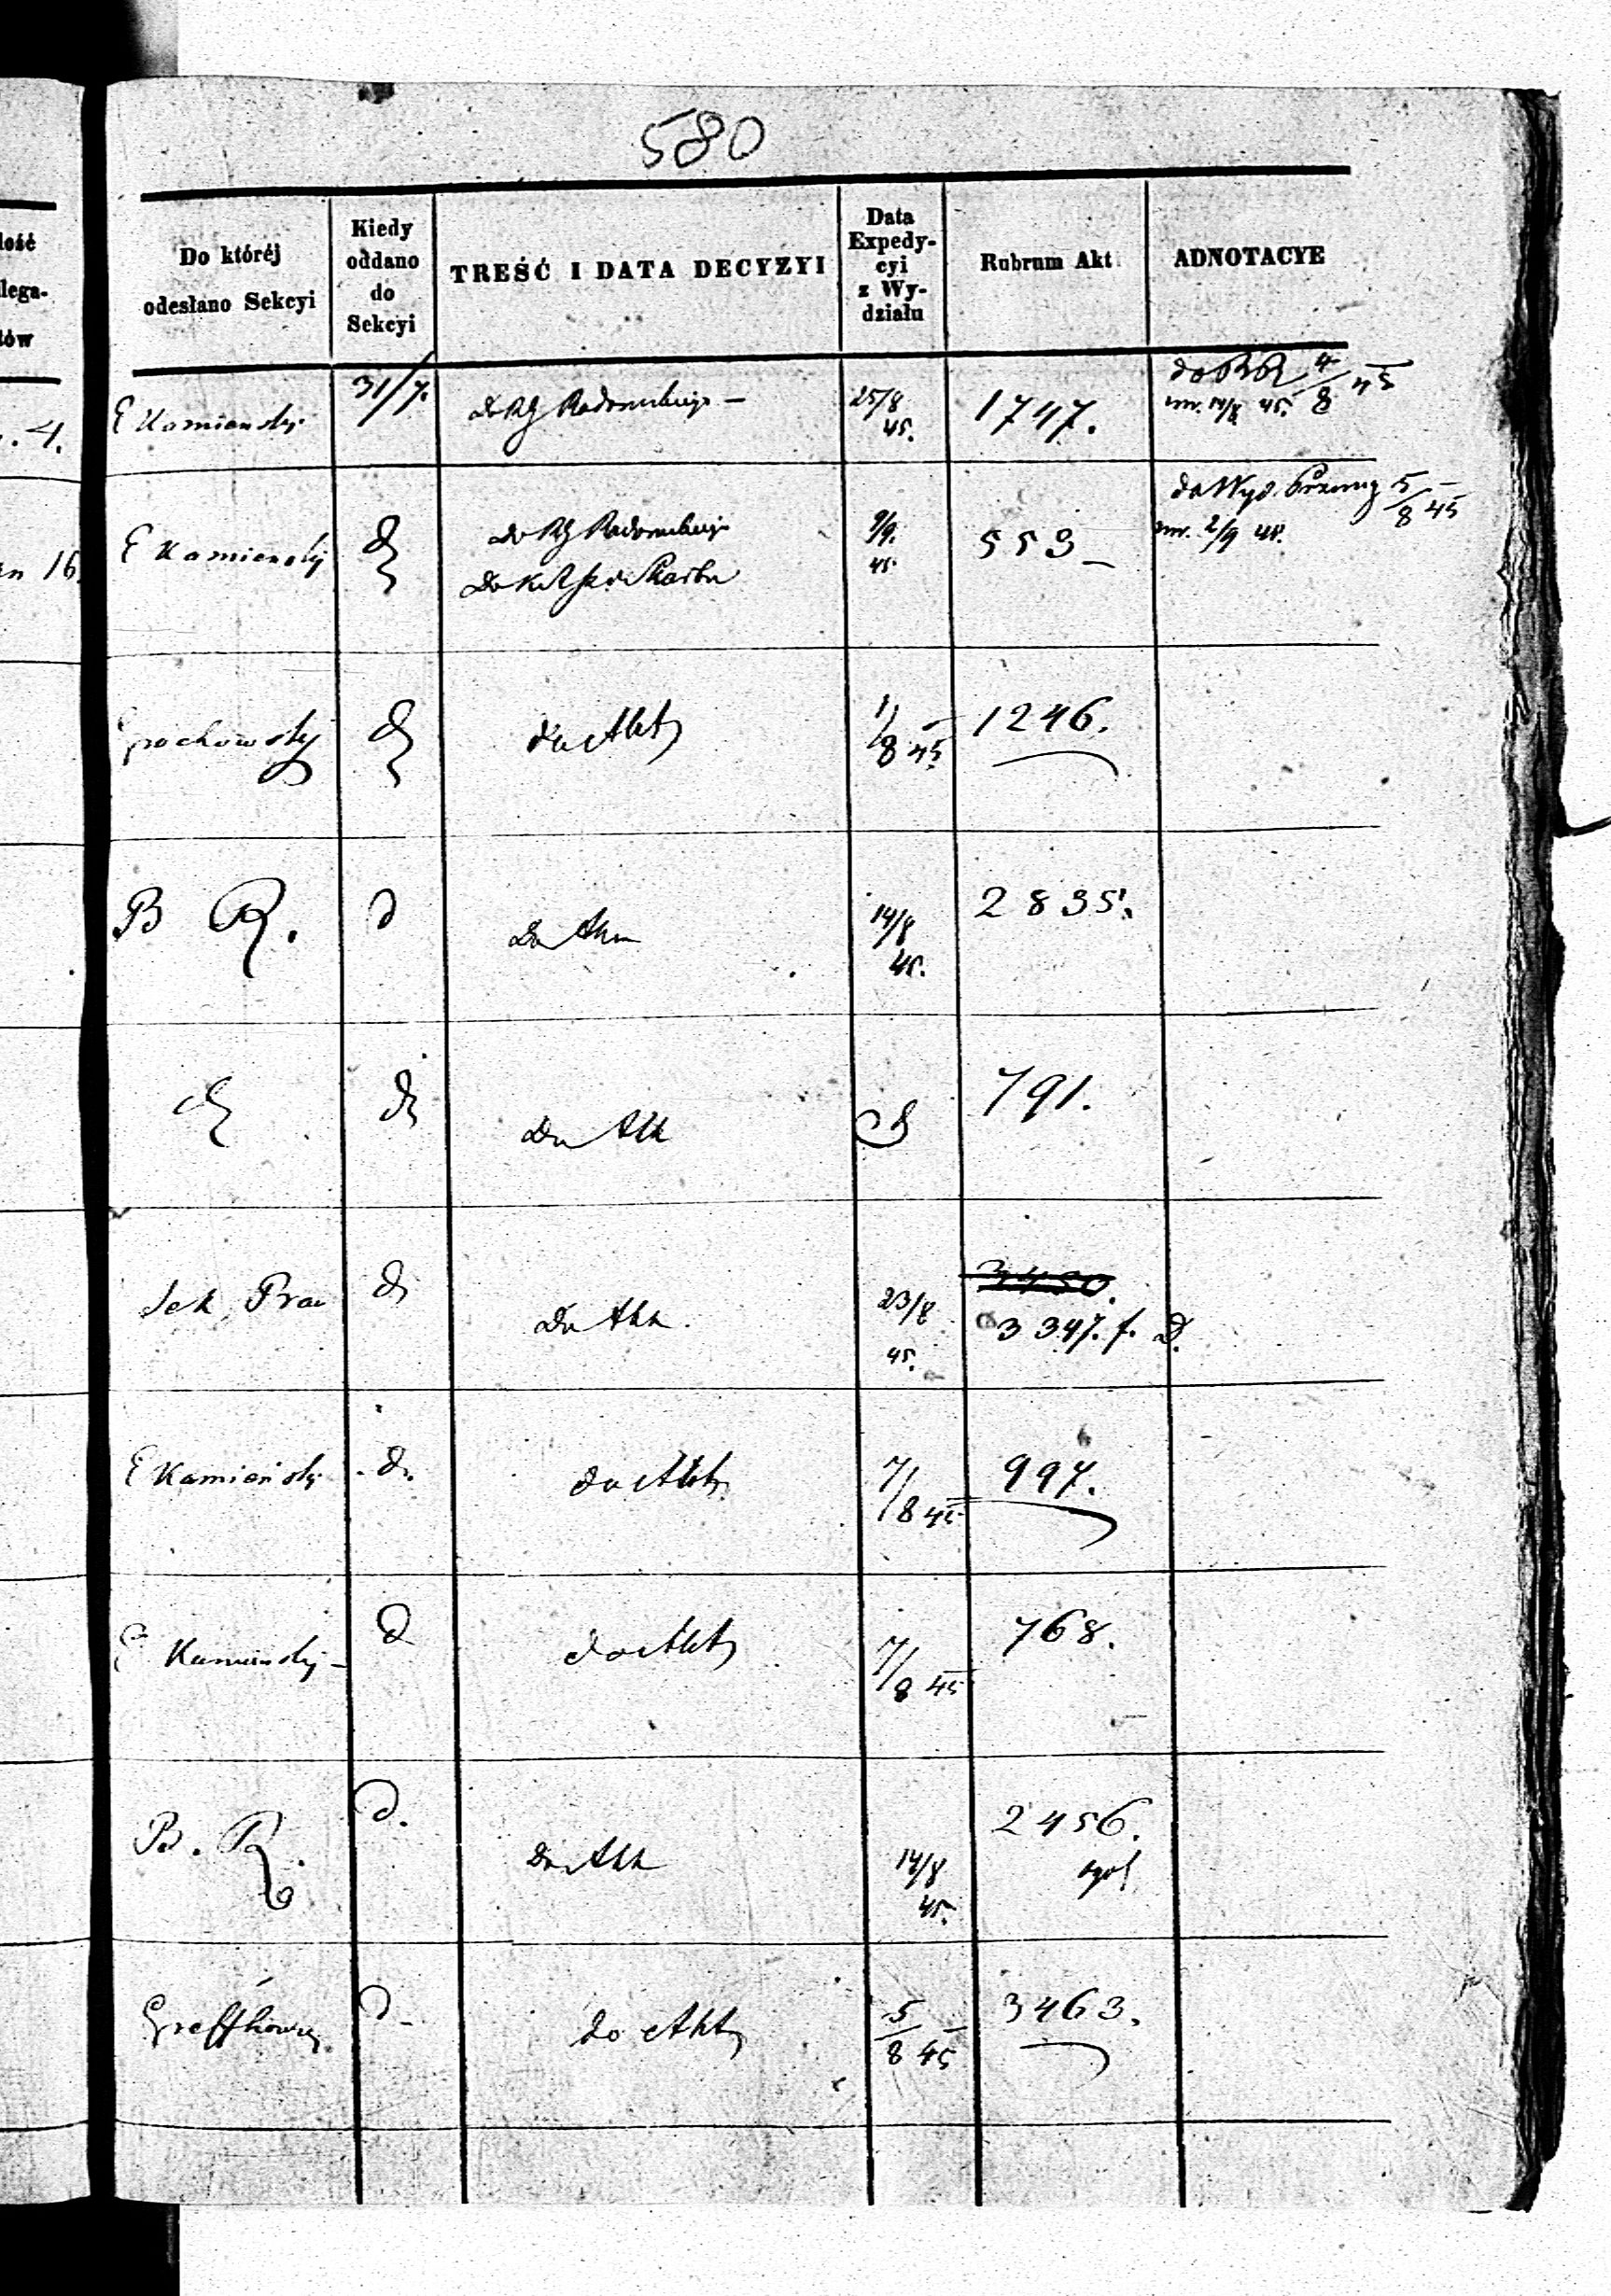 580
lość
lega-
tów
Do któréj
odesłano Sekcyi
Kiedy
oddano
do
Sekcyi
TREŚĆ I DATA DECYZYI
Data
Expedy-
cyi
z Wy-
działu
Rubrum Akt
ADNOTACYE
4.
E Kamieński
31/7.
Do RG Radomskiego —
25/8
45.
1747.
do 4/8 45
14/8 45.
16.
E Kamieński
d
Do RG Radomskiego
Do Skarbu
9/9.
45.
553 —
do Wyd. Przemy 5/8 45
2/9 45.
Grochowski
d
do Akt
1/8 45
1246.
B R.
d
Do Akt
14/8
45.
2835.
d
d
Do Akt
d
791.
Sek. Praw
d
Do Akt.
23/8
45.
3450.
3347. f. D.
E Kamieński
d.
do Akt
7/8 45
997.
E Kamieński —
d
do Akt
7/8 45
768.
B. R.
d.
Do Akt
14/8
45.
2456.
ogól
d —
do Akt
5/8 45
3463.